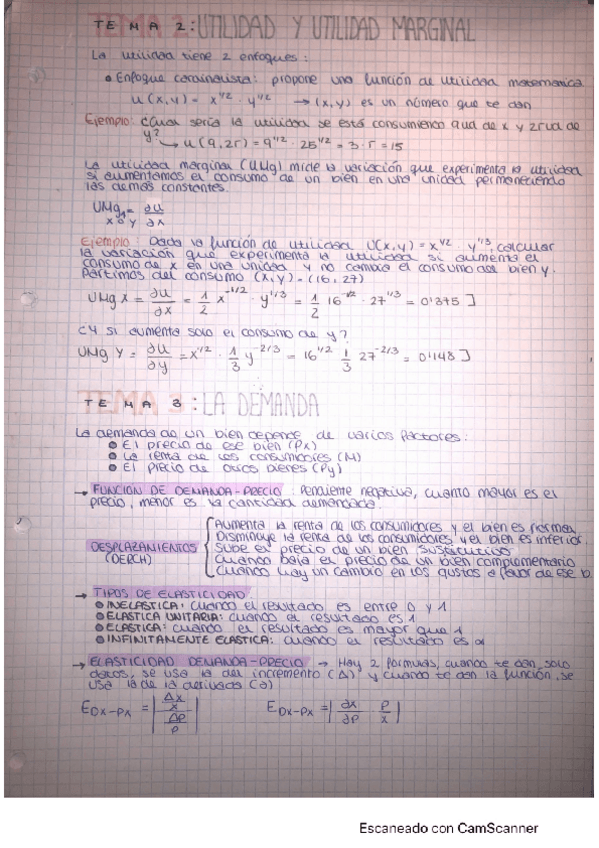 TEMA 2: UTILIDAD Y UTILIDAD MARGINAL
La utilidad tiene 2 enfoques:
• Enfoque cardinalista: propone una función de utilidad matemática
u(x,y) = x^1/2 · y^1/2 → (x,y) es un número que te dan
Ejemplo: ¿Cual sería la utilidad se está consumiendo 9ud de x y 25ud de
y? → u(9,25) = 9^1/2 · 25^1/2 = 3 · 5 = 15
La utilidad marginal (UMg) mide la variación que experimenta la utilidad
si aumentamos el consumo de un bien en una unidad permaneciendo
las demás constantes.
UMg x o y = ∂u/∂x
Ejemplo: Dada la función de utilidad U(x,y) = x^1/2 · y^1/3, calcular
la variación que experimenta la utilidad si aumenta el
consumo de x en una unidad y no cambia el consumo del bien y.
Partimos del consumo (x,y) = (16,27)
UMg x = ∂u/∂x = 1/2 x^-1/2 · y^1/3 = 1/2 16^-1/2 · 27^1/3 = 0'375]
¿Y si aumenta solo el consumo de y?
UMg Y = ∂u/∂y = x^1/2 · 1/3 y^-2/3 = 16^1/2 1/3 27^-2/3 = 0'148]
TEMA 3: LA DEMANDA
La demanda de un bien depende de varios factores:
• El precio de ese bien (Px)
• La renta de los consumidores (M)
• El precio de otros bienes (Py)
→ FUNCIÓN DE DEMANDA-PRECIO: Pendiente negativa, cuanto mayor es el
precio, menor es la cantidad demandada.
DESPLAZAMIENTOS (DERCH)
Aumenta la renta de los consumidores y el bien es normal
Disminuye la renta de los consumidores y el bien es inferior.
Sube el precio de un bien sustitutivo
Cuando baja el precio de un bien complementario
Cuando hay un cambio en los gustos a favor de ese b.
→ TIPOS DE ELASTICIDAD:
• INELASTICA: cuando el resultado es entre 0 y 1
• ELASTICA UNITARIA: cuando el resultado es 1
• ELASTICA: cuando el resultado es mayor que 1
• INFINITAMENTE ELASTICA: cuando el resultado es ∞
→ ELASTICIDAD DEMANDA-PRECIO → Hay 2 formulas, cuando te dan solo
datos, se usa la del incremento (Δ) y cuando te dan la función, se
usa la de la derivada (∂)
E Dx-Px = |Δx/x / Δp/p| E Dx-Px = |∂x/∂p p/x|
Escaneado con CamScanner